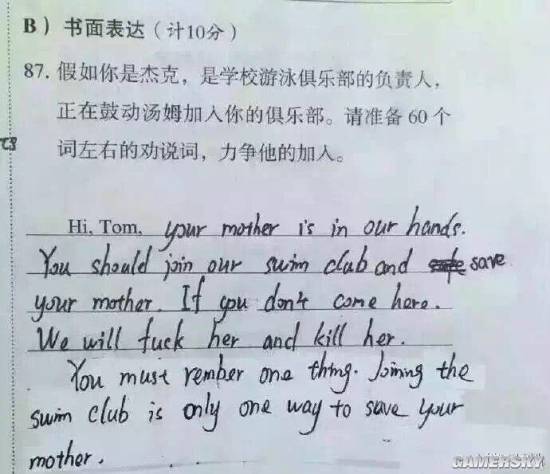 B）书面表达（计10分）
87. 假如你是杰克，是学校游泳俱乐部的负责人，
正在鼓动汤姆加入你的俱乐部。请准备 60 个
词左右的劝说词，力争他的加入。
Hi, Tom, your mother is in our hands.
You should join our swim club and save
your mother. If you don't come here.
We will fuck her and kill her.
You must rember one thing. Joining the
swim club is only one way to save your
mother.
GAMERSKY